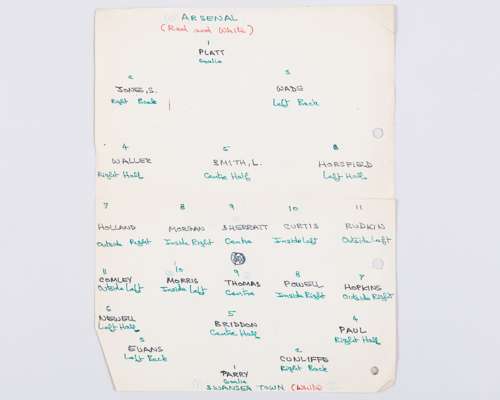 ARSENAL
(Red and White)
1
PLATT
Goalie
2 3
JONES, S. WADE
Right Back Left Back
4 5 6
WALLER SMITH, L. HORSFIELD
Right Half Centre Half Left Half
7 8 9 10 11
HOLLAND MORGAN SHERRATT CURTIS RUDKIN
Outside Right Inside Right Centre Inside Left Outside Left
11 10 9 8 7
COMLEY MORRIS THOMAS POWELL HOPKINS
Outside Left Inside Left Centre Inside Right Outside Right
6 5 4
NEWELL BRIDDON PAUL
Left Half Centre Half Right Half
3 2
EVANS CUNLIFFE
Left Back Right Back
1
PARRY
Goalie
SWANSEA TOWN (White)